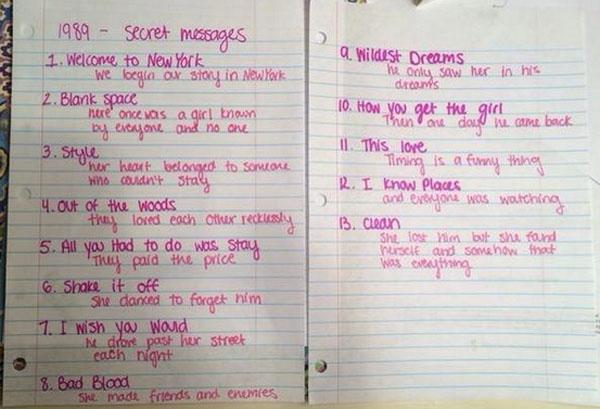 1989 - secret messages
1. Welcome to New York
We begin our story in New York
2. Blank space
here once was a girl known
by everyone and no one
3. Style
her heart belonged to someone
who couldn't stay
4. Out of the woods
they loved each other recklessly
5. All you Had to do was Stay
They paid the price
6. Shake it off
She danced to forget him
7. I wish you would
he drove past her street
each night
8. Bad Blood
She made friends and enemies
9. Wildest Dreams
he only saw her in his
dreams
10. How you get the girl
Then one day he came back
11. This love
Timing is a funny thing
12. I know Places
and everyone was watching
13. Clean
She lost him but she found
herself and somehow that
was everything